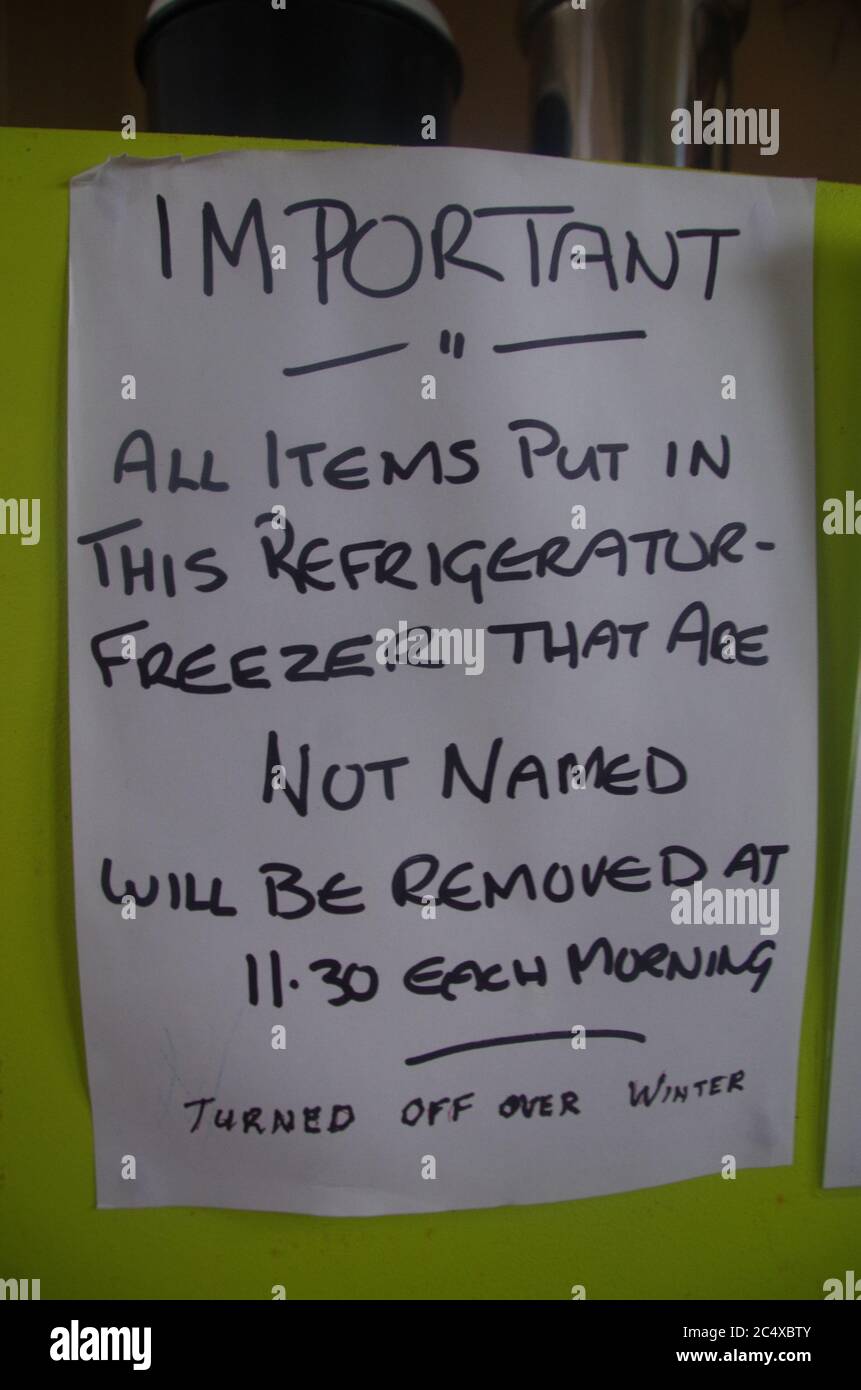 IMPORTANT
— " —
ALL ITEMS PUT IN
THIS REFRIGERATOR-
FREEZER THAT ARE
NOT NAMED
WILL BE REMOVED AT
11.30 EACH MORNING
TURNED OFF OVER WINTER
a
alamy
a alamy stock photo
Image ID: 2C4XBTY
www.alamy.com